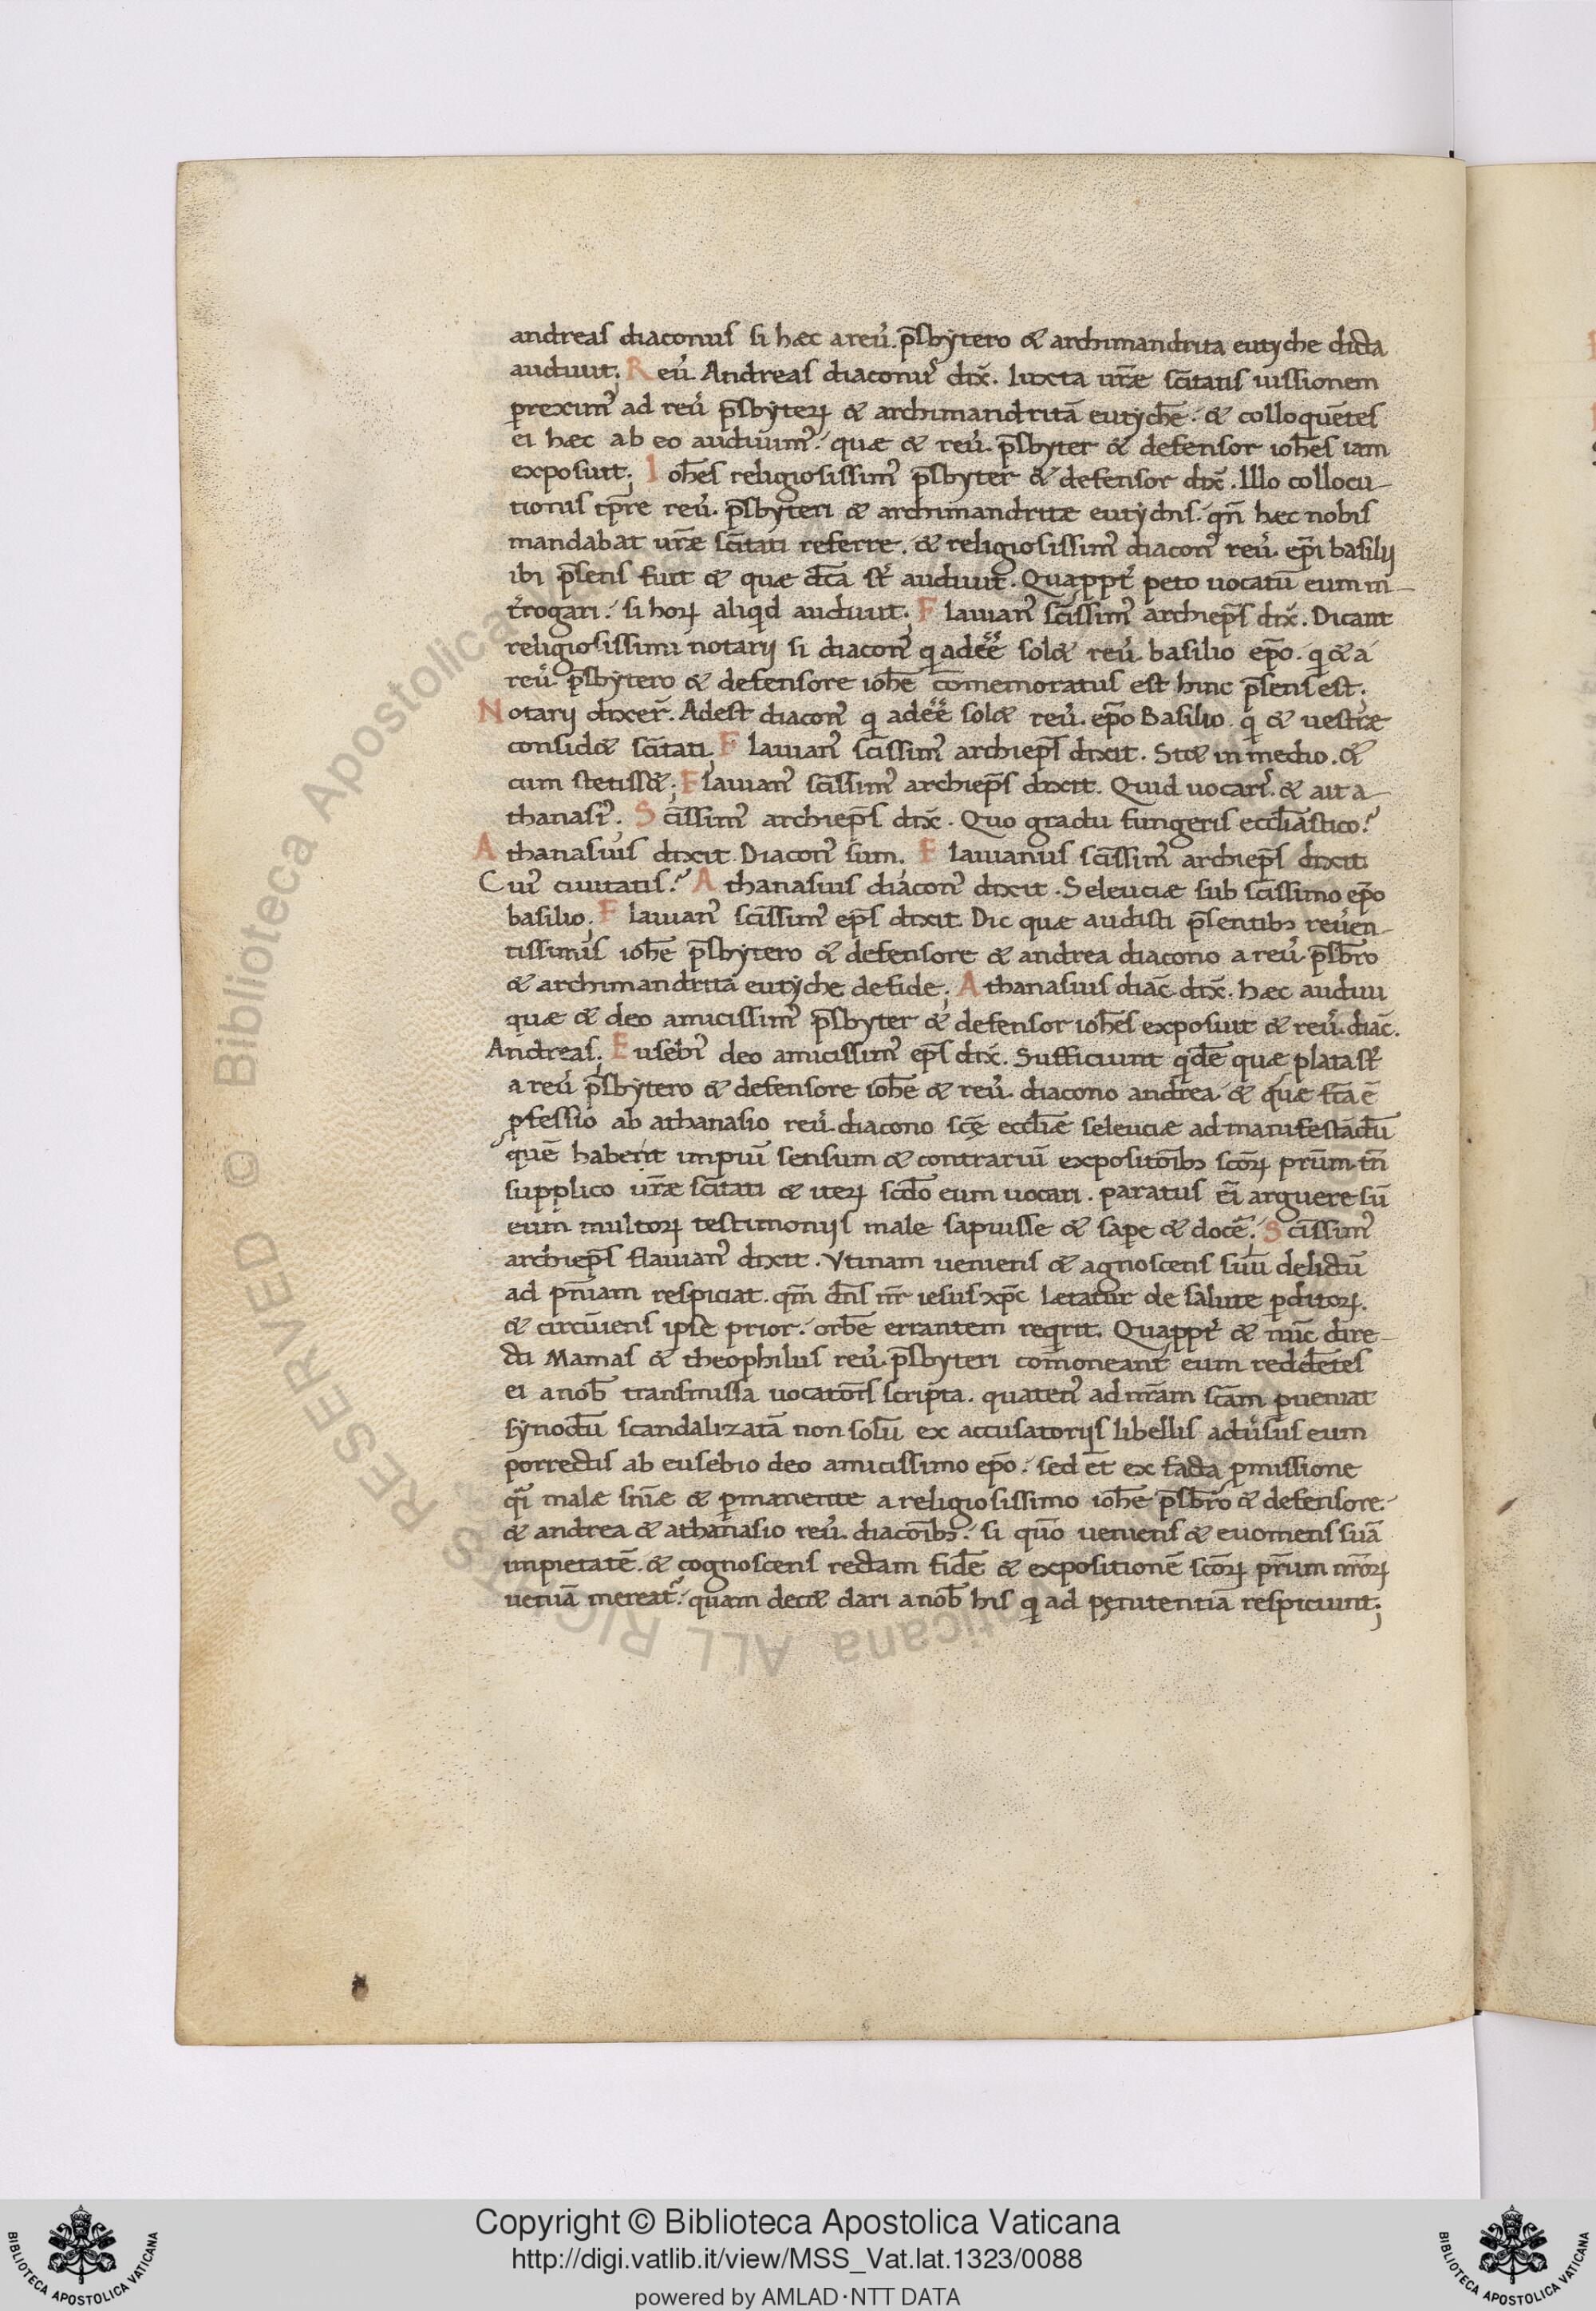 andreas diaconus si hæc a reu᷒. p̄sbytero & archimandrita eutyche dicta
audiuit; Reu᷒. Andreas diaconus dix̄. Iuxta ur̄æ sc̄itatis iussionem
preximꝰ ad reu᷒ p̄sbyteꝝ & archimandritā eutychē. & colloquētes
ei hæc ab eo audiuimꝰ. quæ & reu᷒. p̄sbyter & defensor ioh̄es iam
exposuit; Ioh̄es religiosissimꝰ p̄sbyter & defensor dix̄. Illo collocu-
tionis tp̄re reu᷒. p̄sbyteri & archimandritæ eutychis. qn̄ hæc nobis
mandabat ur̄æ sc̄itati referre. & religiosissimꝰ diaconꝰ reu᷒. ep̄i basilij
ibi p̄sens fuit & quæ dc̄a st᷒ audiuit. Quappt᷒ peto uocatū eum in-
t᷒rogari. si hoꝝ aliqid audiuit; Flauianꝰ sc̄issimꝰ archiep̄s dix̄. Dicant
religiosissimi notarij si diaconꝰ qi adee᷒ sol& reu᷒. basilio ep̄o. qi & a
reu᷒. p̄sbytero & defensore ioh̄e com̄emoratus est hinc p̄sens est.
Notarij dixer̄. Adest diaconꝰ qi adee᷒ sol& reu᷒. ep̄o Basilio. qi & uestræ
consid& sc̄itati; Flauianꝰ sc̄issimꝰ archiep̄s dixit. St& in medio. &
cum stetiss&; Flauianꝰ sc̄issimꝰ archiep̄s dixit. Quid uocaris. & ait a-
thanasiꝰ. Sc̄issimꝰ archiep̄s dix̄. Quo gradu fungeris eccl̄iastico?
Athanasius dixit. Diaconꝰ sum. Flauianus sc̄issimꝰ archiep̄s dixit.
Cuiꝰ ciuitatis? Athanasius diaconꝰ dixit. Seleuciæ sub sc̄issimo ep̄o
basilio; Flauianꝰ sc̄issimꝰ ep̄s dixit. Dic quæ audisti p̄sentibꝫ reu᷒en-
tissimis ioh̄e p̄sbytero & defensore & andrea diacono a reu᷒. p̄sbr̄o
& archimandrita eutyche de fide; Athanasius diac̄ dix̄. hæc audiui
quæ & deo amicissimꝰ p̄sbyter & defensor ioh̄es exposuit & reu᷒. diac̄.
Andreas; Eusebiꝰ deo amicissimꝰ ep̄s dix̄. Sufficiunt qidē quæ plata st᷒
a reu᷒ p̄sbytero & defensore ioh̄e & reu᷒. diacono andrea & quæ fc̄a ē
ꝓfessio ab athanasio reu᷒. diacono sc̄ę eccl̄iæ seleuciæ ad manifestādū
quē habent impiū sensum & contrariū expositōibꝫ sc̄oꝝ pr̄um. tn̄
supplico ur̄æ sc̄itati & iteꝝ sc̄do eum uocari. paratus ei᷒ arguere sū
eum multoꝝ testimonijs male sapuisse & sape & docē; Sc̄issimꝰ
archiep̄s flauianꝰ dixit. Vtinam ueniens & agnoscens suū delictū
ad pn̄iam respiciat. qm̄ dn̄s nr̄ iesus xp̄c letatur de salute ꝑditoꝝ.
& circūiens ipse prior. orbē errantem reqirit. Quappt᷒ & nūc dire-
cti Mamas & theophilus reu᷒. p̄sbyteri com̄oneant eum reddētes
ei a nob̄ transmissa uocatōis scripta. quatenꝰ ad nr̄am sc̄am ꝑueniat
synodū scandalizatā non solū ex accusatorijs libellis adu᷒sus eum
porrectis ab eusebio deo amicissimo ep̄o. sed et̄ ex facta ꝓmissione
qi malæ sn̄iæ & ꝑmanente a religiosissimo ioh̄e p̄sbr̄o & defensore.
& andrea & athanasio reu᷒. diacōibꝫ. si quo᷒ ueniens & euomens suā
impietatē. & cognoscens rectam fidē & expositionē sc̄oꝝ pr̄um nr̄oꝝ
ueniā mereat᷒. quam dec& dari a nob̄ his qi ad pęnitentiā respiciunt;
© Biblioteca Apostolica Vaticana ALL RIGHTS RESERVED
Copyright © Biblioteca Apostolica Vaticana
http://digi.vatlib.it/view/MSS_Vat.lat.1323/0088
powered by AMLAD·NTT DATA
BIBLIOTECA APOSTOLICA VATICANA
BIBLIOTECA APOSTOLICA VATICANA